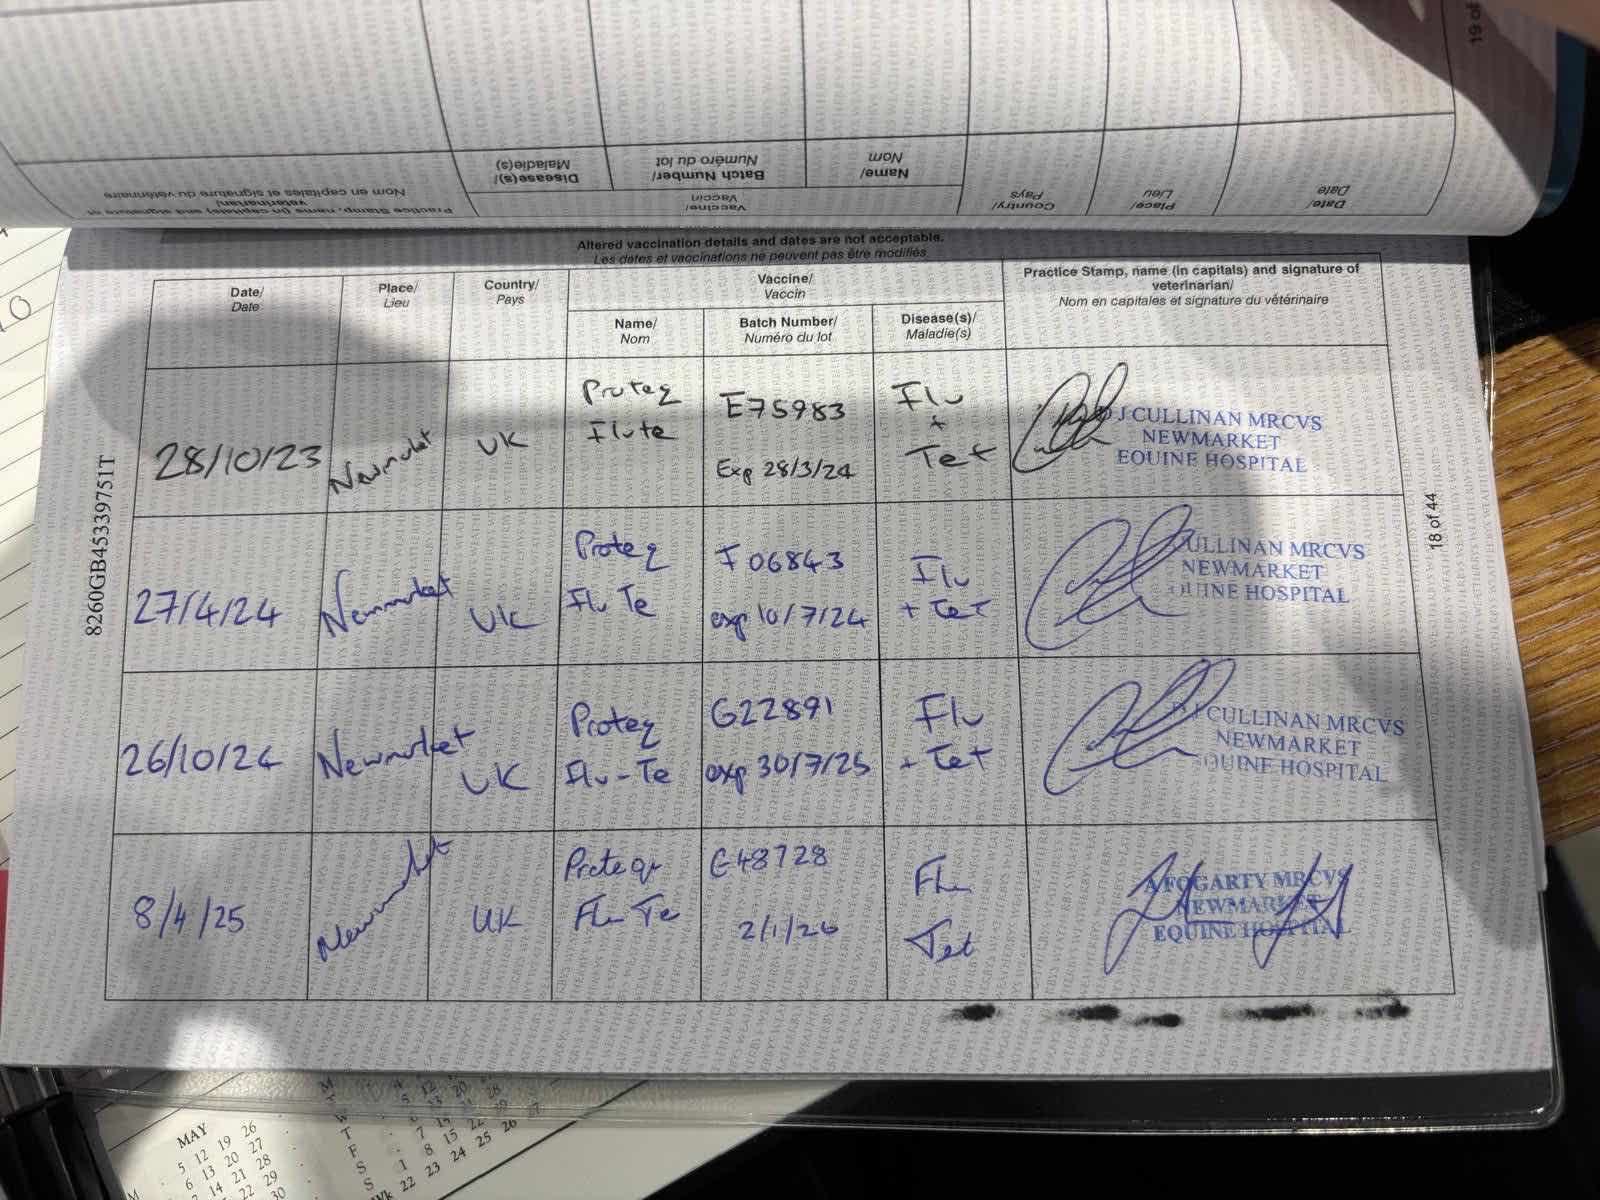 19 of
Practice Stamp, name (in capitals) and signature of veterinarian/
Nom en capitales et signature du vétérinaire
Vaccine/
Vaccin
Disease(s)/
Maladie(s)
Batch Number/
Numéro du lot
Name/
Nom
Country/
Pays
Place/
Lieu
Date/
Date
Altered vaccination details and dates are not acceptable.
Les dates et vaccinations ne peuvent pas être modifiés
Date/
Date
Place/
Lieu
Country/
Pays
Vaccine/
Vaccin
Name/
Nom
Batch Number/
Numéro du lot
Disease(s)/
Maladie(s)
Practice Stamp, name (in capitals) and signature of
veterinarian/
Nom en capitales et signature du vétérinaire
28/10/23
Newmarket
UK
Proteq
Flute
E75983
Exp 28/3/24
Flu
+
Tet
DJ CULLINAN MRCVS
NEWMARKET
EQUINE HOSPITAL
27/4/24
Newmarket
UK
Proteq
Flu Te
F06843
exp 10/7/24
Flu
+ Tet
CULLINAN MRCVS
NEWMARKET
QUINE HOSPITAL
26/10/24
Newmarket
UK
Proteq
Flu-Te
G22891
exp 30/7/25
Flu
+ Tet
DJ CULLINAN MRCVS
NEWMARKET
QUINE HOSPITAL
8/4/25
Newmarket
UK
Proteq
Flu Te
E48728
2/1/26
Flu
Tet
A FOGARTY MRCVS
NEWMARKET
EQUINE HOSPITAL
8260GB45339751T
18 of 44
MAY
5 12 19 26
6 13 20 27
7 14 21 28